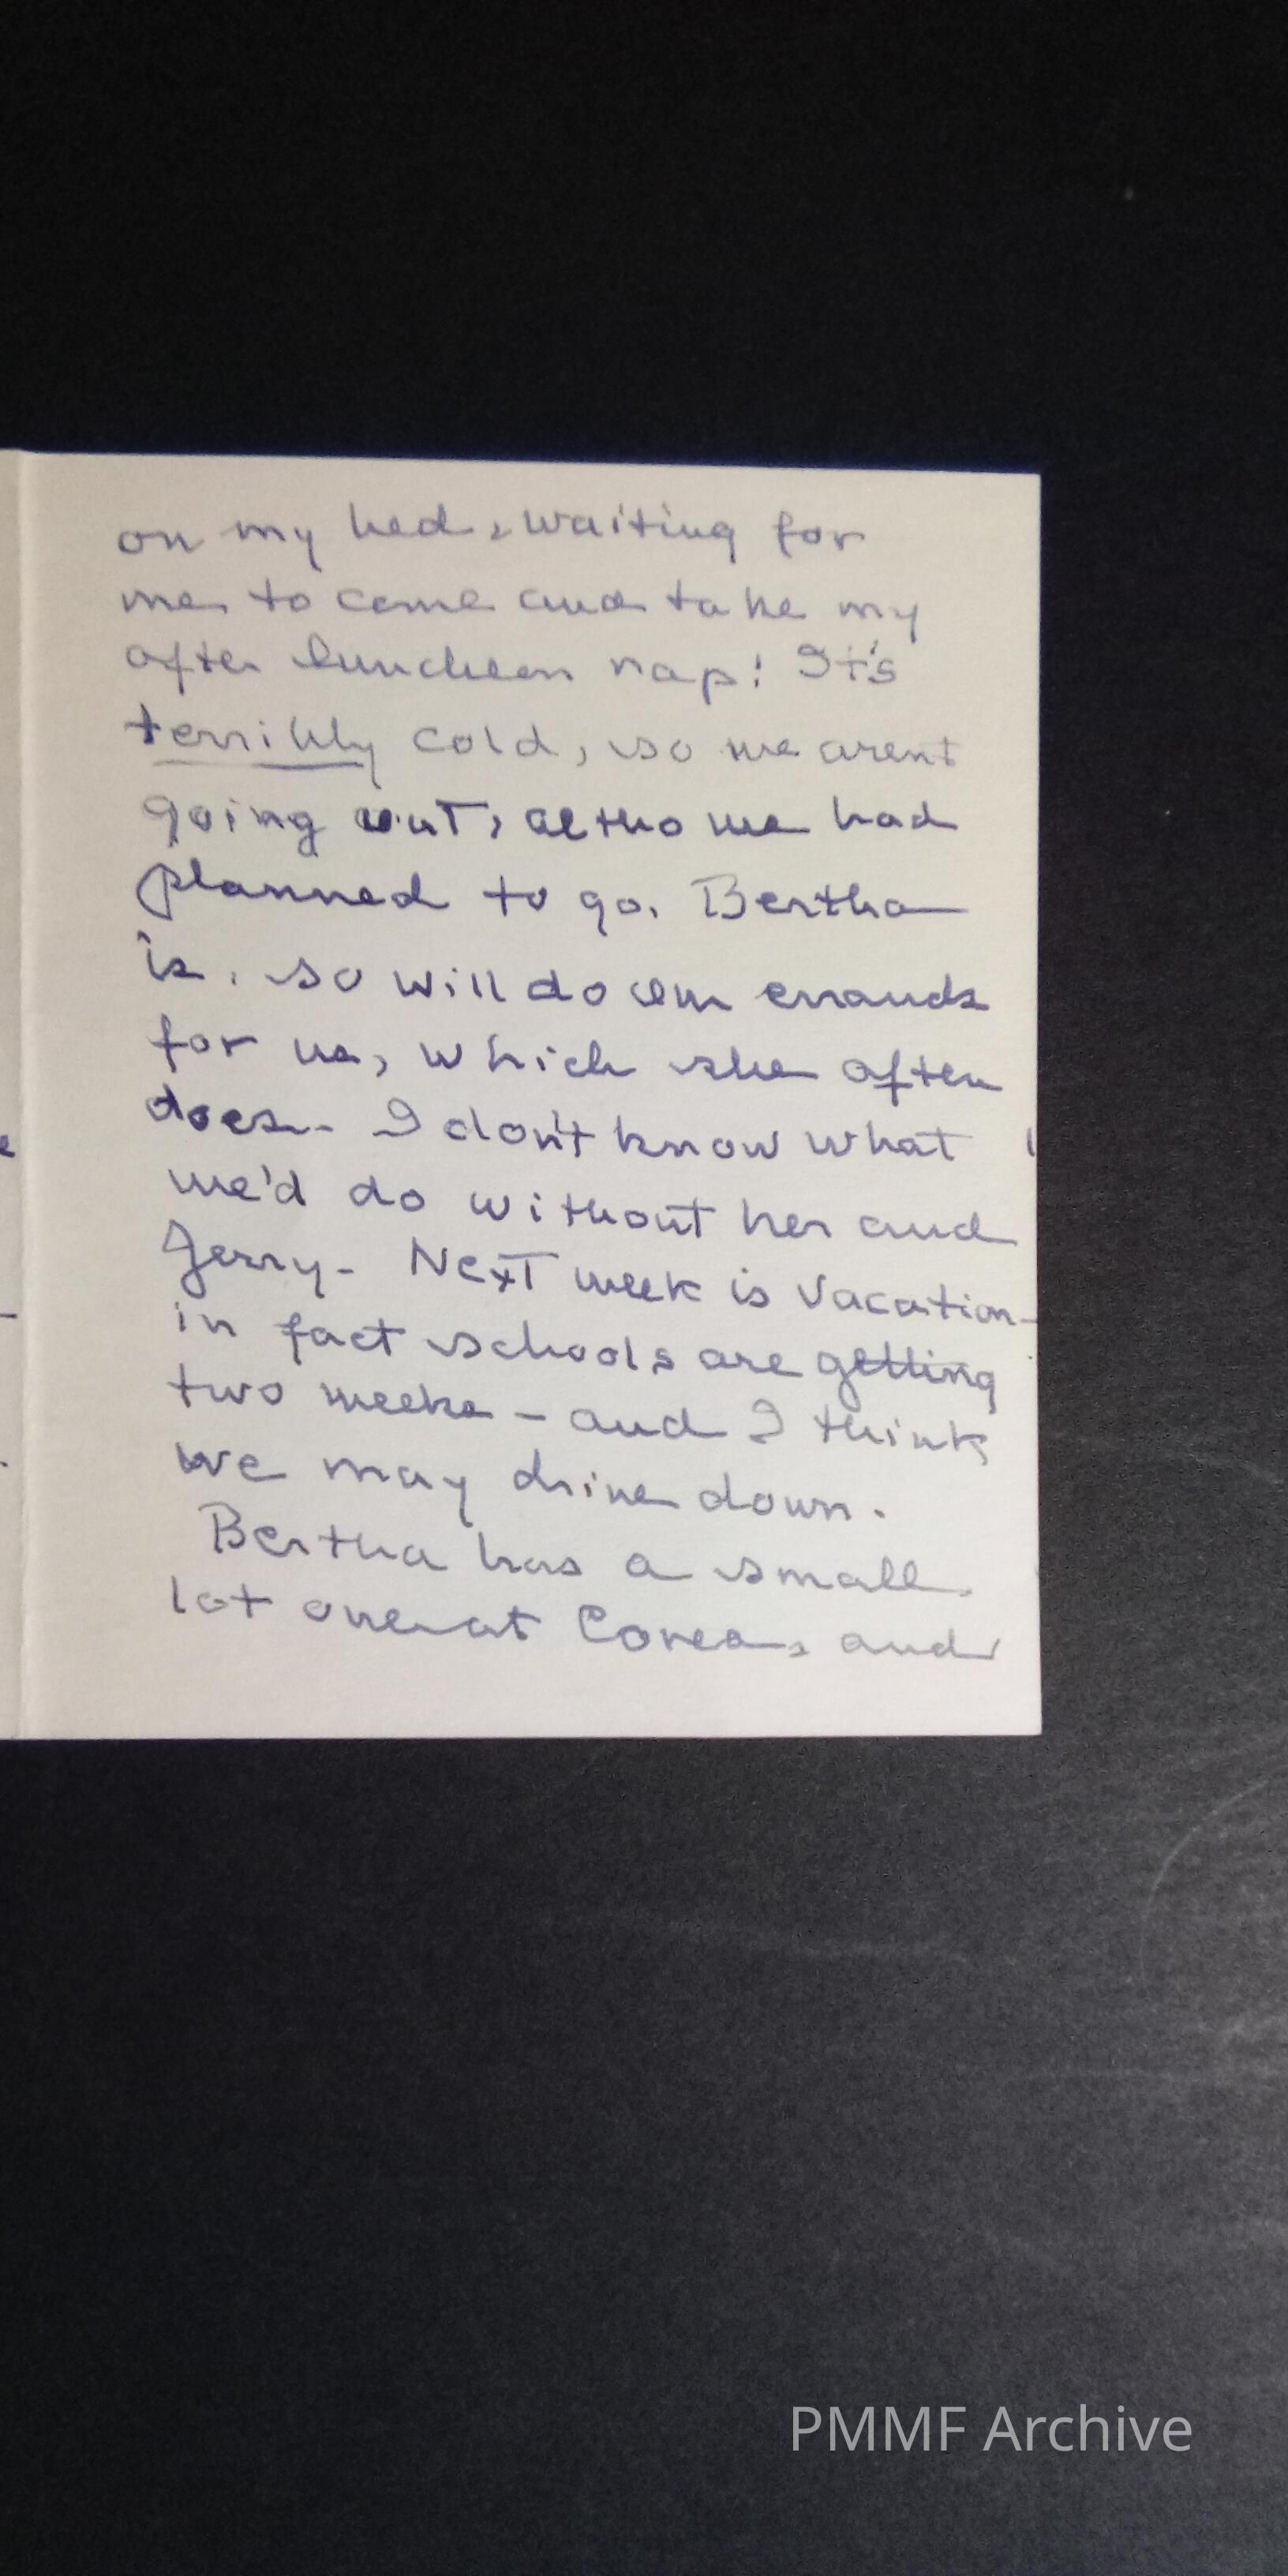 on my bed, waiting for
me to come and take my
after luncheon nap! It's
terribly cold, so we arent
going out, altho we had
planned to go. Bertha
is. so will do our errands
for us, which she often
does - I don't know what
we'd do without her and
Jerry - Next week is vacation -
in fact schools are getting
two weeks - and I think
we may drive down.
Bertha has a small
lot over at Corea, and
PMMF Archive